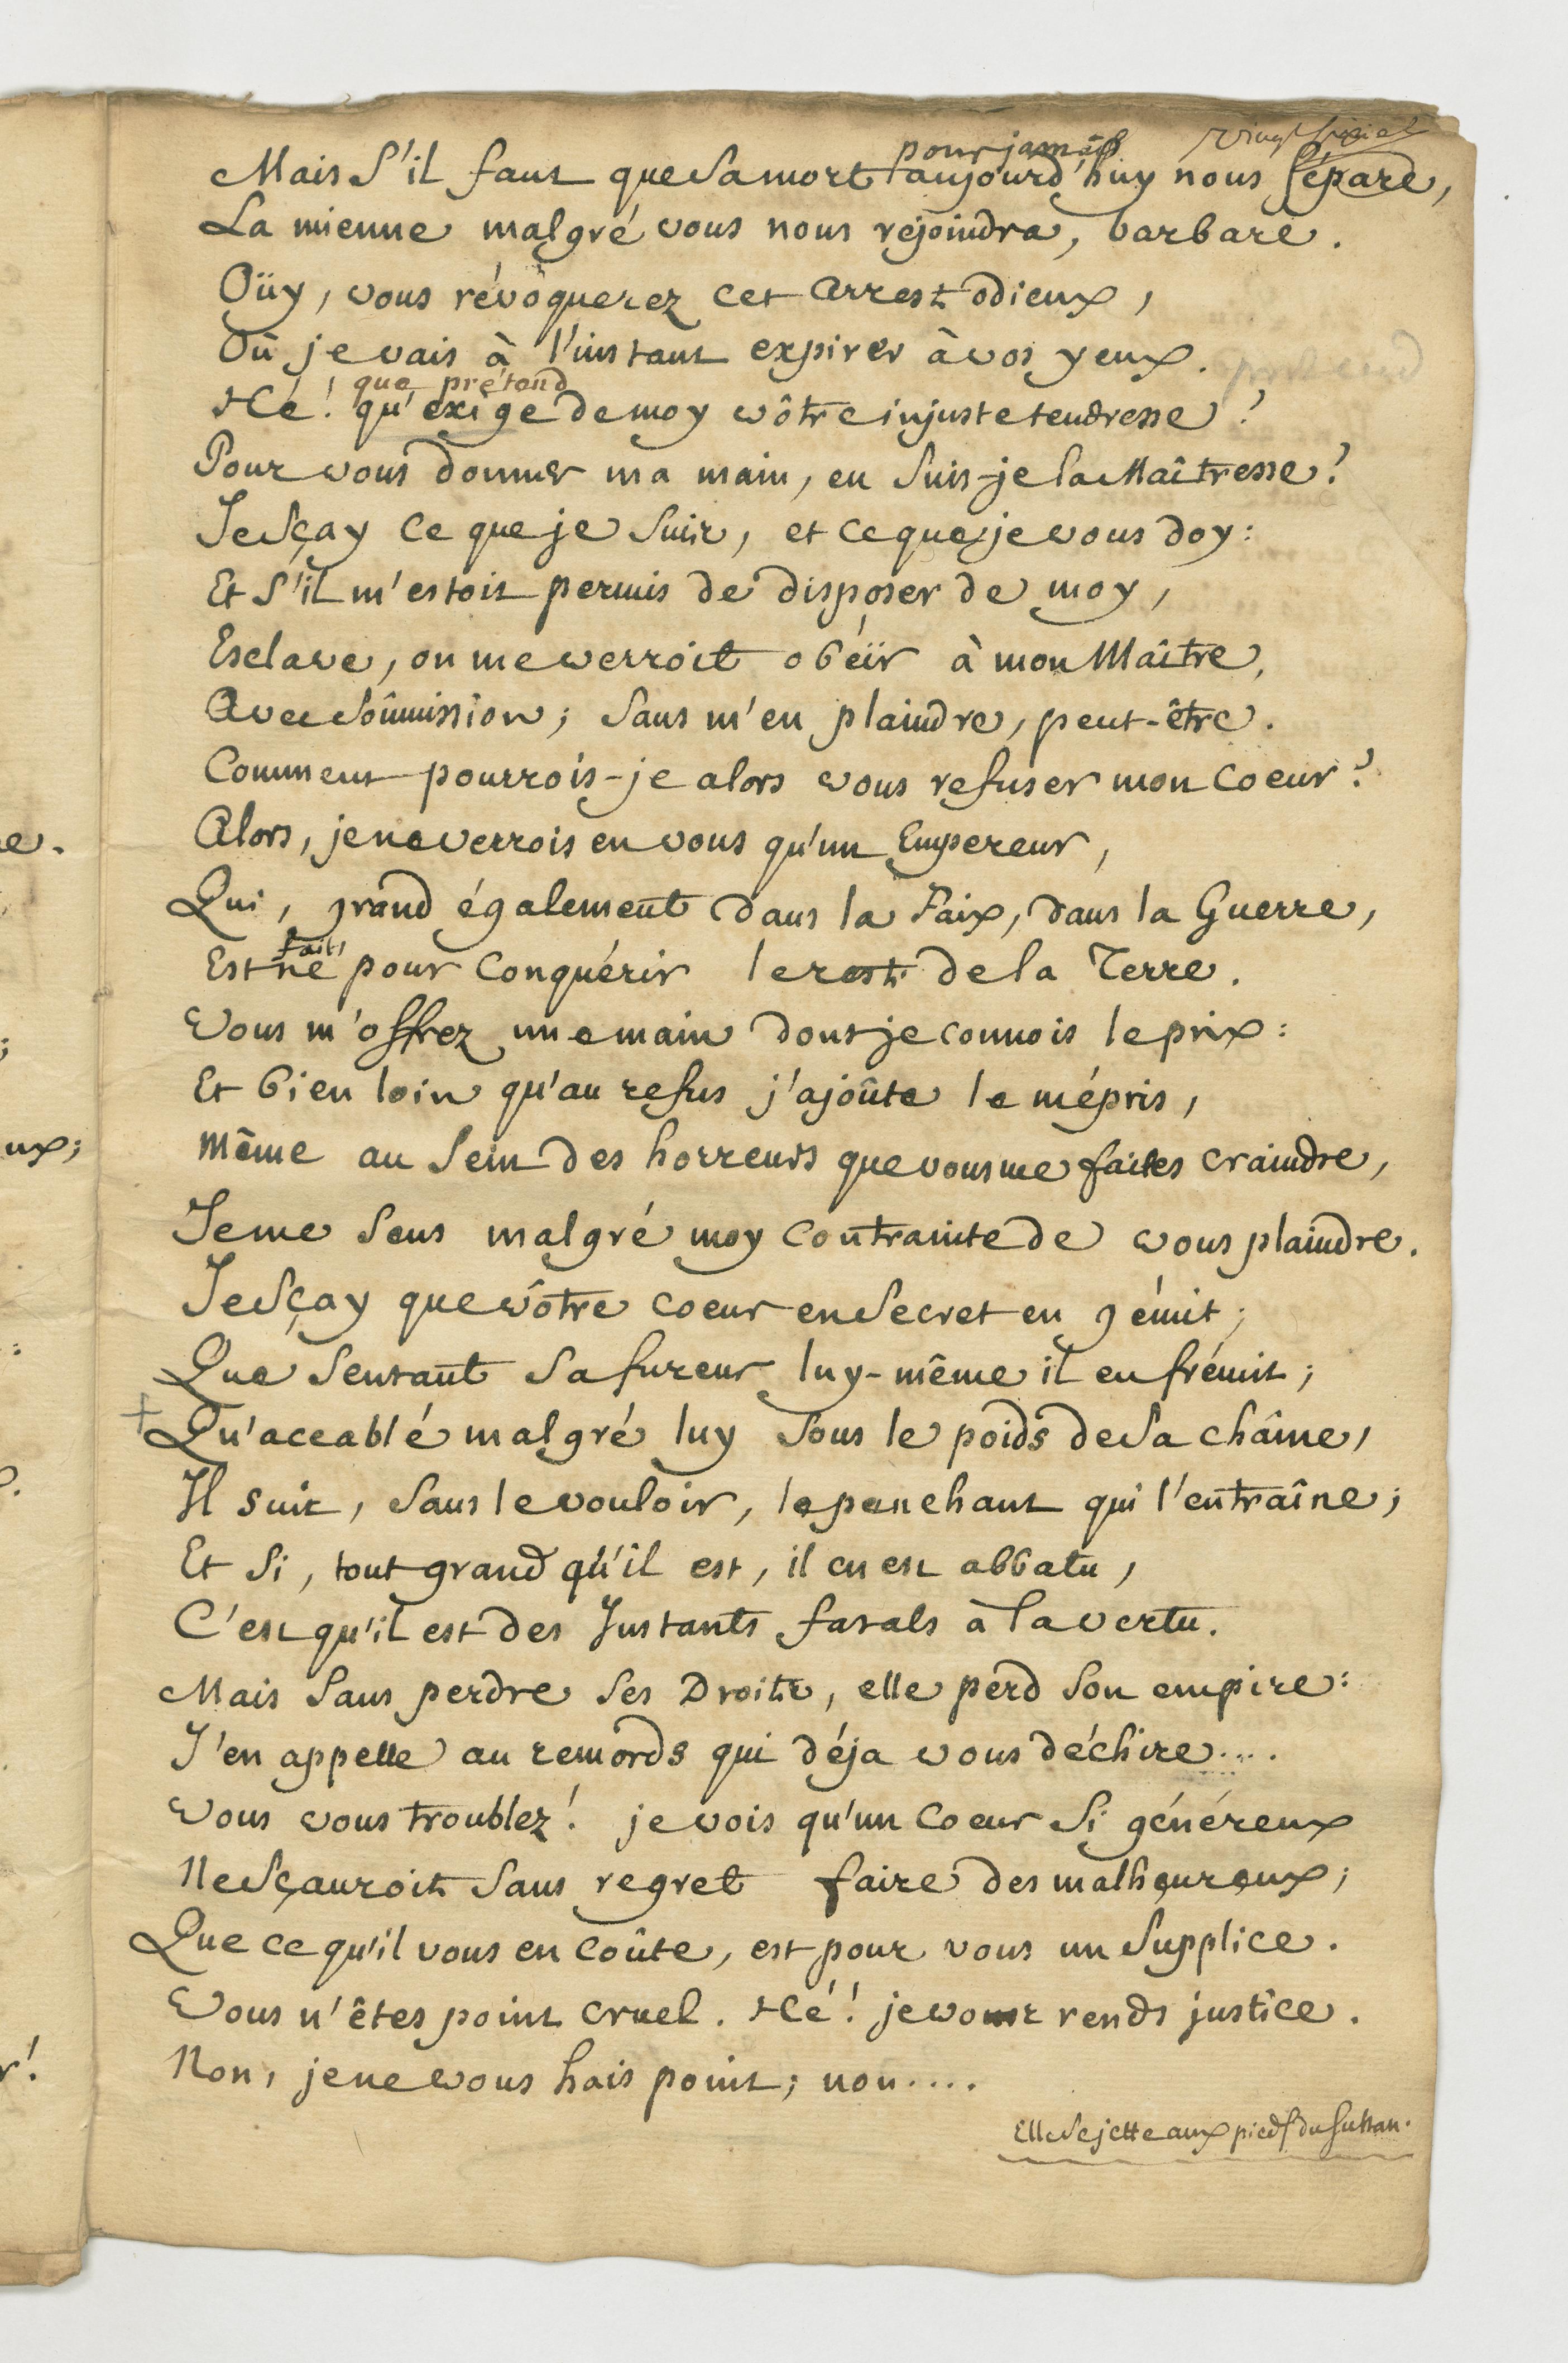 vingt sixie
pour jamais
Mais s'il faut que sa mort aujourd'huy nous sépare,
La mienne malgré vous nous rejoindra, barbare.
Oüy, vous révoquerez cet Arrest odieux,
Où je vais à l'instant expirer à vos yeux.
que prétend
Hé! qu'exige de moy vôtre injuste tendresse?
Pour vous donner ma main, en suis-je la Maîtresse?
Je sçay ce que je suis, et ce que je vous doy:
Et s'il m'estoit permis de disposer de moy,
Esclave, on me verroit obéïr à mon Maître,
Avec soûmission; sans m'en plaindre, peut-être.
Comment pourrois-je alors vous refuser mon coeur?
Alors, je ne verrois en vous qu'un Empereur,
Qui, grand également dans la Paix, dans la Guerre,
fait
Est né pour conquérir le reste de la Terre.
Vous m'offrez une main dont je connois le prix:
Et bien loin qu'au refus j'ajoûte le mépris,
Même au sein des horreurs que vous me faites craindre,
Je me sens malgré moy contrainte de vous plaindre.
Je sçay que vôtre coeur en secret en gémit;
Que sentant sa fureur luy-même il en frémit;
+ Qu'accablé malgré luy sous le poids de sa chaîne,
Il suit, sans le vouloir, le panchant qui l'entraîne;
Et si, tout grand qu'il est, il en est abbatu,
C'est qu'il est des Instants fatals à la vertu.
Mais sans perdre ses Droits, elle perd son empire:
J'en appelle au remords qui déja vous déchire....
Vous vous troublez! je vois qu'un coeur si généreux
Ne sçauroit sans regret faire des malheureux;
Que ce qu'il vous en coûte, est pour vous un supplice.
Vous n'êtes point cruel. Hé! je vous rends justice.
Non, je ne vous hais point; non....
Elle se jette aux pieds du sultan.